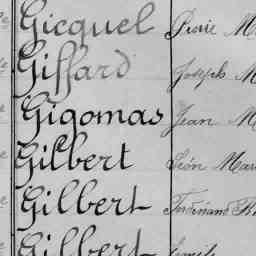 Gicquel Pierre M
Giffard Joseph M
Gigomas Jean M
Gilbert Léon Mar
Gilbert Ferdinand
Gilbert Emile